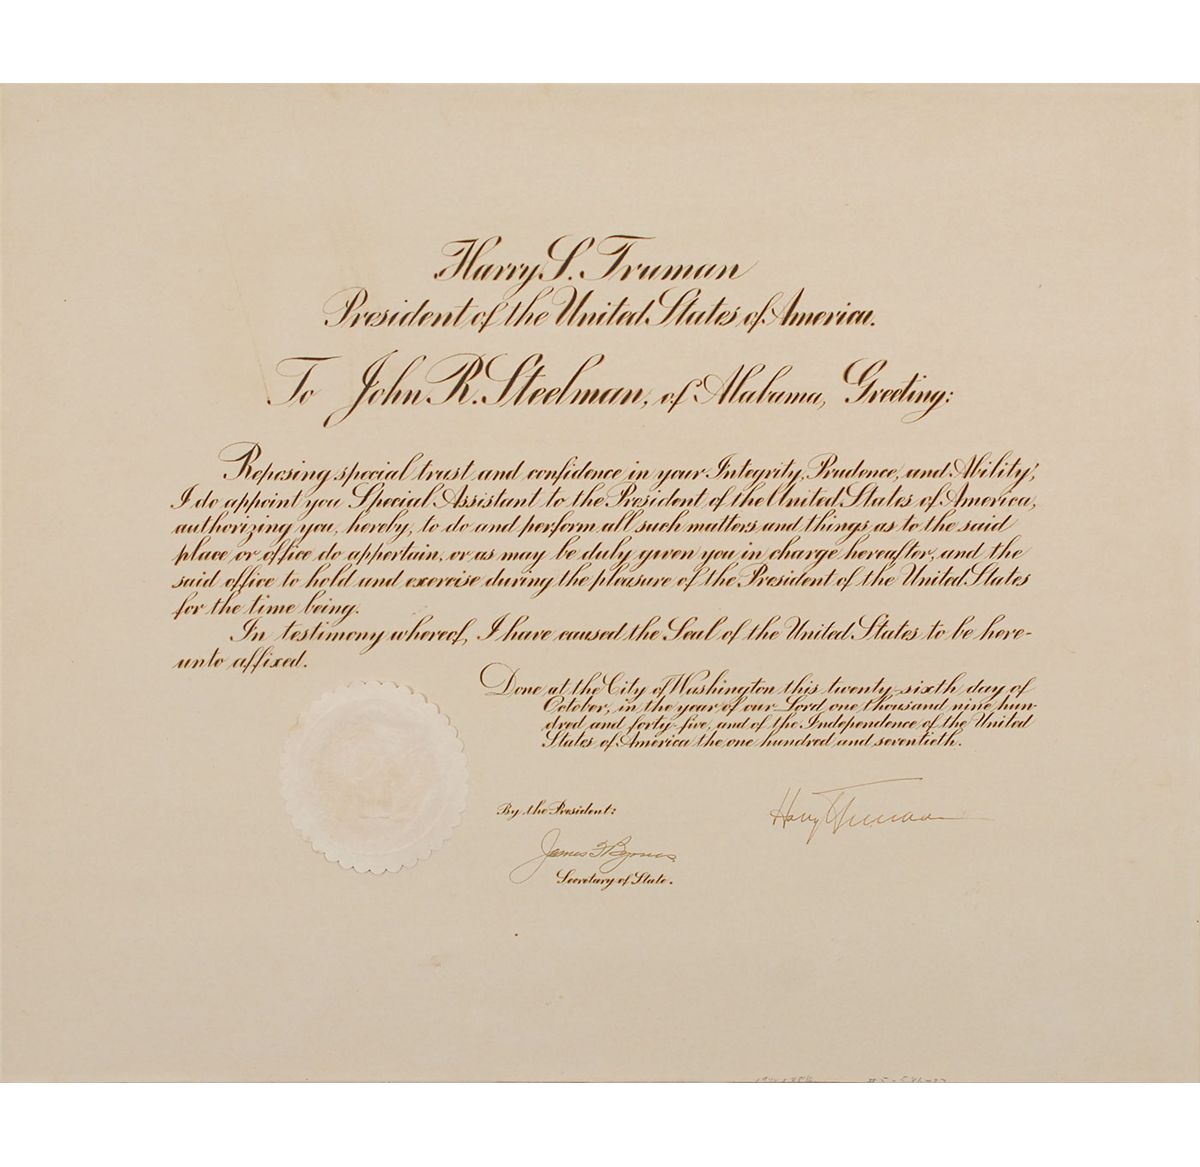 Harry S. Truman
President of the United States of America.
To John R. Steelman, of Alabama, Greeting:
Reposing special trust and confidence in your Integrity, Prudence, and Ability,
I do appoint you Special Assistant to the President of the United States of America,
authorizing you, hereby, to do and perform all such matters and things as to the said
place or office do appertain, or as may be duly given you in charge hereafter, and the
said office to hold and exercise during the pleasure of the President of the United States
for the time being.
In testimony whereof, I have caused the Seal of the United States to be here-
unto affixed.
Done at the City of Washington this twenty-sixth day of
October, in the year of our Lord one thousand nine hun-
dred and forty-five, and of the Independence of the United
States of America the one hundred and seventieth.
By the President:
Harry Truman
James F Byrnes
Secretary of State.